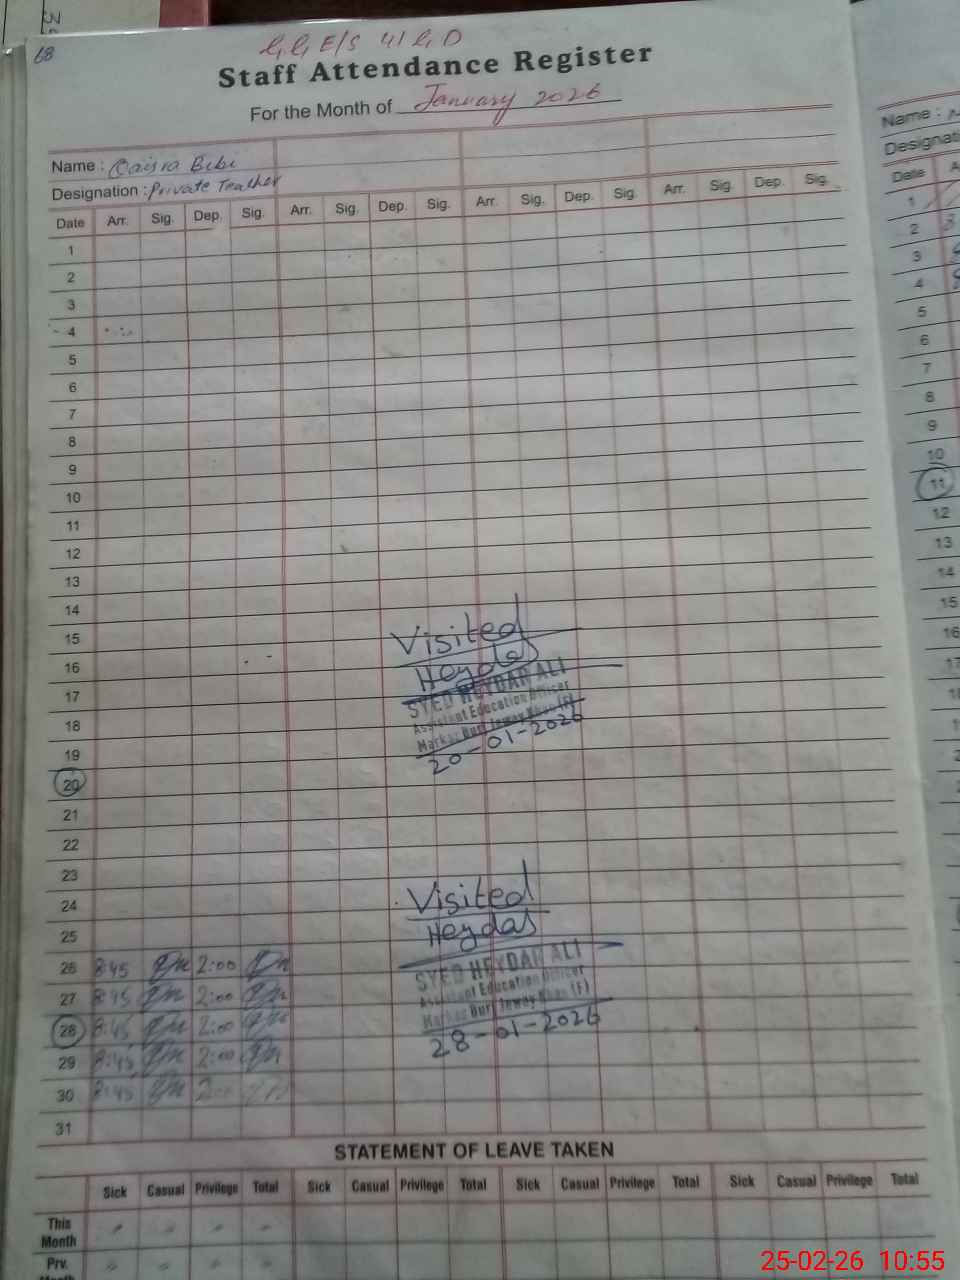 68
G G E/S 41 G D
Staff Attendance Register
For the Month of January 2026
Name : Qaisra Bibi
Designation : Private Teacher
Date Arr. Sig. Dep. Sig. Arr. Sig. Dep. Sig. Arr. Sig. Dep. Sig. Arr. Sig. Dep. Sig.
1
2
3
4
5
6
7
8
9
10
11
12
13
14
15
16
17
18
19
20
21
22
23
24
25
26 8:45 2:00
27 8:45 2:00
28 8:45 2:00
29 8:45 2:00
30 8:45 2:00
31
Visited
Heydar
SYED HEYDAR ALI
Assistant Education Officer
Markaz Burj Jeway Khan (F)
20-01-2026
Visited
Heydar
SYED HEYDAR ALI
Assistant Education Officer
Markaz Burj Jeway Khan (F)
28-01-2026
STATEMENT OF LEAVE TAKEN
Sick Casual Privilege Total Sick Casual Privilege Total Sick Casual Privilege Total Sick Casual Privilege Total
This
Month
Prv.
Month
Name :
Date
1
2
3
4
5
6
7
8
9
10
11
12
13
14
15
16
17
25-02-26 10:55